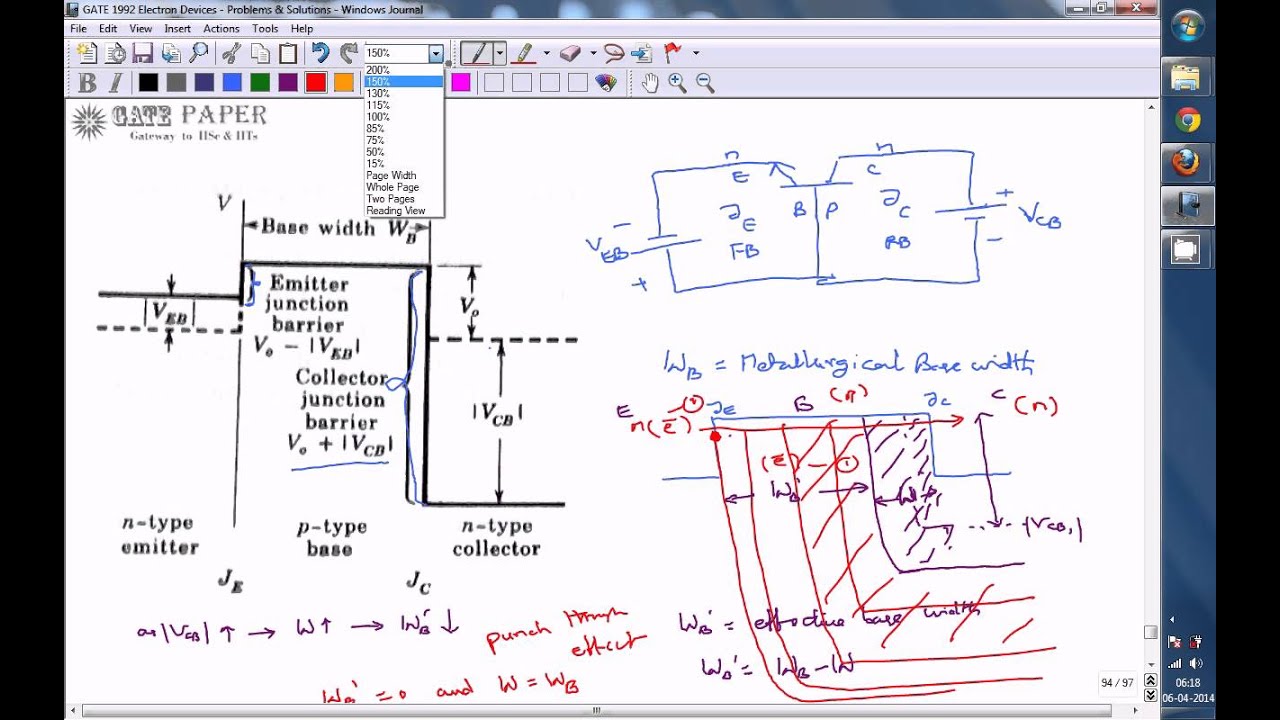 GATE 1992 Electron Devices - Problems & Solutions - Windows Journal
File Edit View Insert Actions Tools Help
150%
200%
150%
130%
115%
100%
85%
75%
50%
15%
Page Width
Whole Page
Two Pages
Reading View
B I
GATE PAPER
Gateway to IISc & IITs
V
Base width W_B
Emitter
junction
barrier
V_o - |V_EB|
|V_EB|
V_o
Collector
junction
barrier
V_o + |V_CB|
|V_CB|
n-type
emitter
p-type
base
n-type
collector
J_E
J_C
n n
E C
B P
J_E J_C
FB RB
- V_EB +
+ V_CB -
W_B = Metallurgical Base width
E J_E B (P) J_C C (n)
n(ē)
(ē)
W_B' W
|V_CB|
as |V_CB| ↑ → W ↑ → W_B' ↓
punch through
effect
W_B' = effective base width
W_B' = W_B - W
W_B' = 0 and W = W_B
94 / 97
06:18
06-04-2014